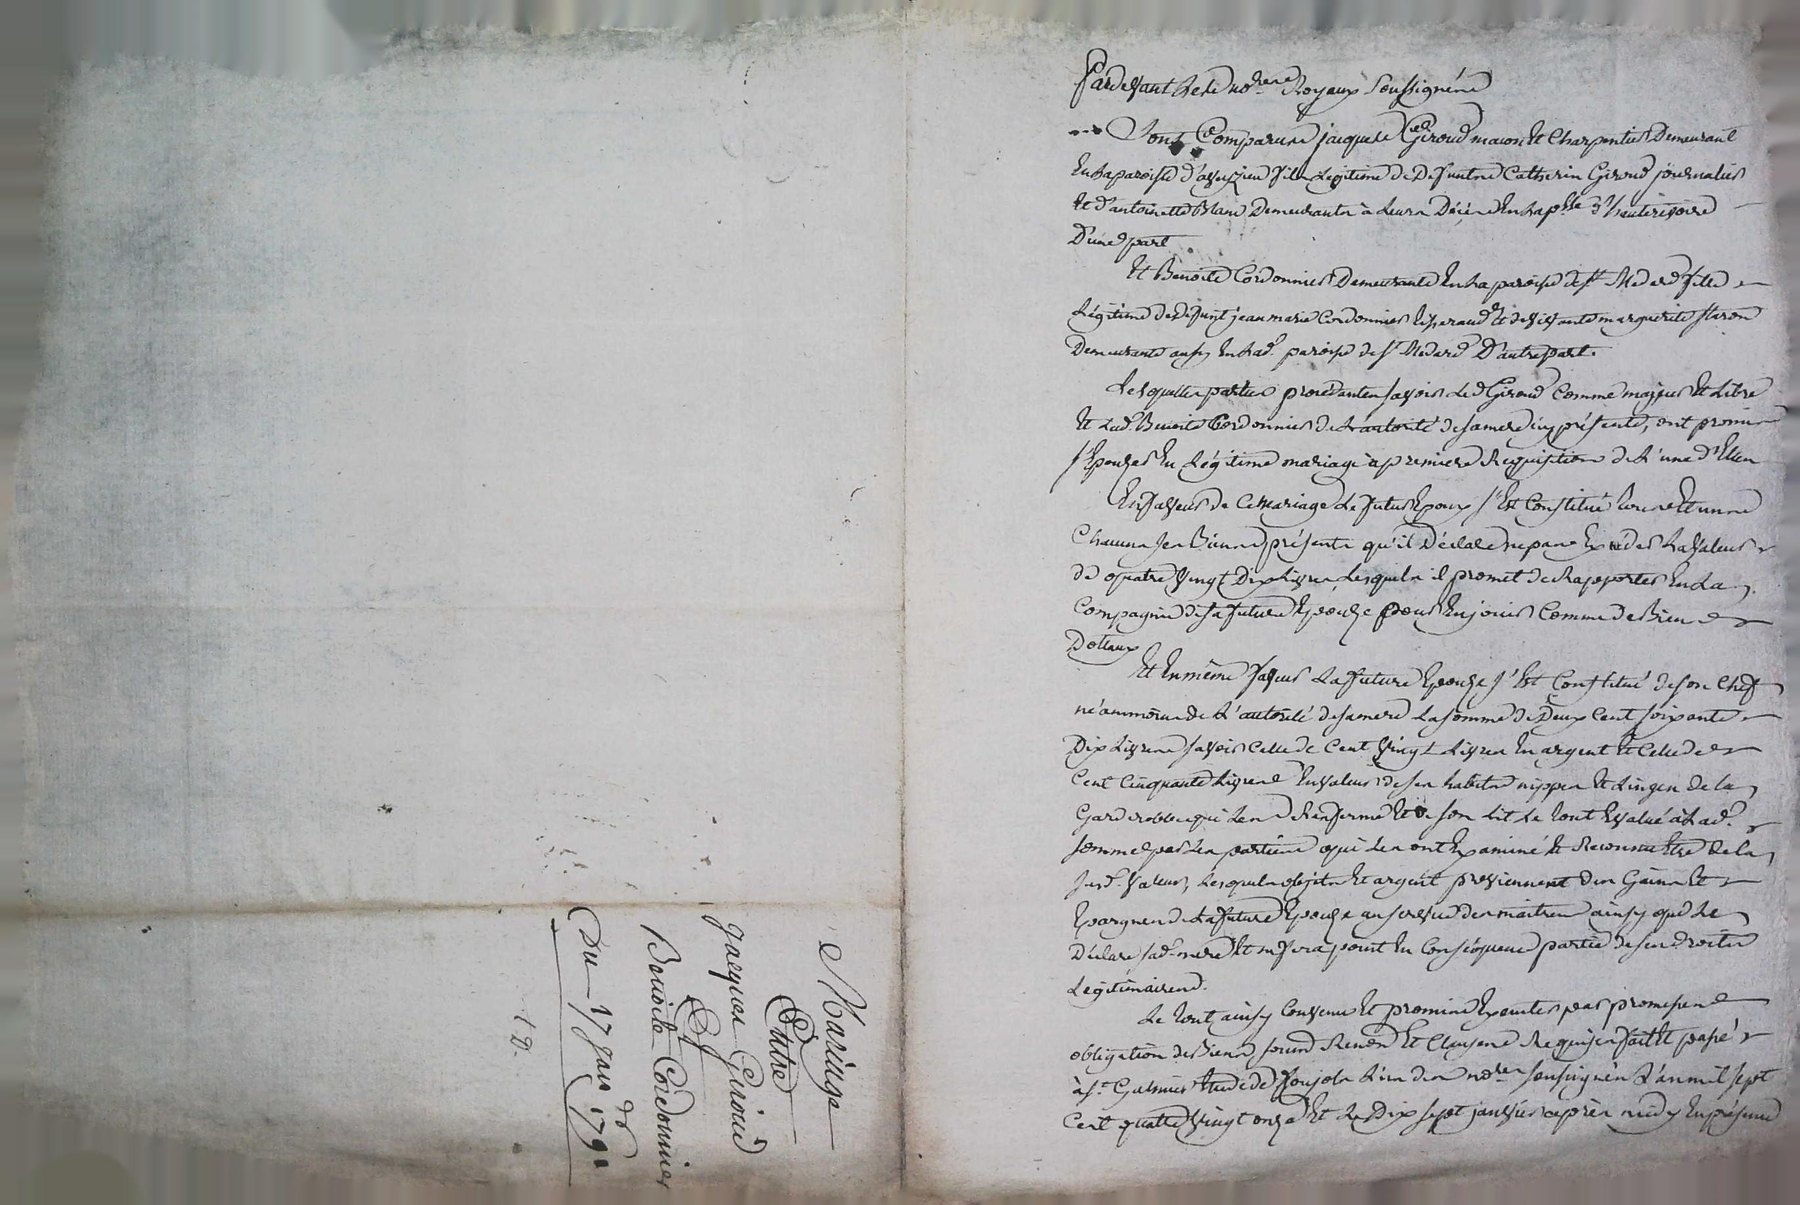 Pardevant Les no.res Royaux Soussignés
Sont Comparus jacques Giroud macon et Charpentier Demeurant
En la paroisse d'aveizieu fils Légitime de Defunts Catherin Giroud journalier
et d'antoinette Blanc Demeurants à Leurs Décès En la p.sse d'hauterivoire
D'une part
Et Benoite Cordonnier Demeurante En la paroisse de St Medard fille
Légitime de Defunt jean marie Cordonnier et de vivante marguerite staron
Demeurante aussy En lad. paroisse de St Medard D'autre part.
Lesquelles parties procédantes savoir Led. Giroud Comme majeur et Libre
et Lad. Benoite Cordonnier de L'autorité de sa mere icy présente, ont promis
s'Epouser En Légitime mariage à premiere Requisition de L'une d'Elles
En faveur de Ce mariage Le futur Epoux s'Est Constitué tous et uns
Chacuns ses Biens présents qu'il Déclare ne pas Exceder La valeur
de quatre vingt Dix Livres Lesquels il promet de Rapporter En La
Compagnie de sa future Epouse pour En jouir Comme de Biens
Dotaux
Et En même faveur La future Epouse s'Est Constitué de son Chef
néanmoins de L'autorité de sa mere La somme de Deux Cent soixante
Dix Livres savoir Celle de Cent vingt Livres En argent et Celle de
Cent Cinquante Livres En valeur de ses habits nippes et Linges de la
Garderobe qui Les Renferme et de son Lit Le tout Evalué à Lad.
somme par Les parties qui Les ont Examiné et Reconnu Etre de la
susd. valeur, Lesquels objets et argent proviennent des Gains et
Epargnes de La future Epouse au service des maitres ainsy que Le
Déclare sad. mere et ne fera point En Conséquence partie de ses droits
Légitimaires.
Le tout ainsy Convenu et promis Executer par promesses
obligation de Biens soums Renon et Clauses Requises fait et passé
à St. Galmier Etude de L'un des no.res soussignés L'an mil sept
Cent quatre vingt onze et Le Dix sept janvier après midy En présence
Mariage
Entre
Jacques Giroud
Et
Benoite Cordonnier
Du 17 janv 1791